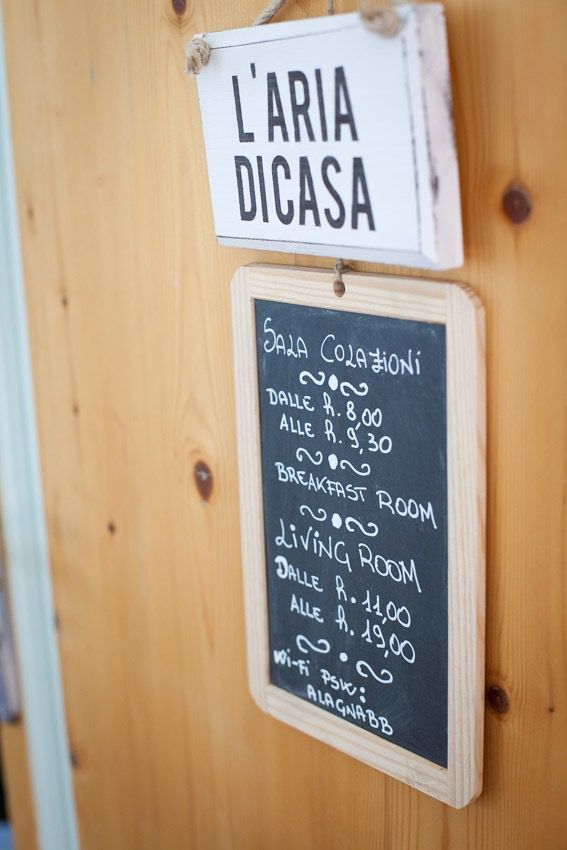 L'ARIA
DICASA
SALA COLAZIONI
DALLE h. 8,00
ALLE h. 9,30
BREAKFAST ROOM
LIVING ROOM
DALLE h. 11,00
ALLE h. 19,00
Wi-Fi PSW:
ALAGNABB